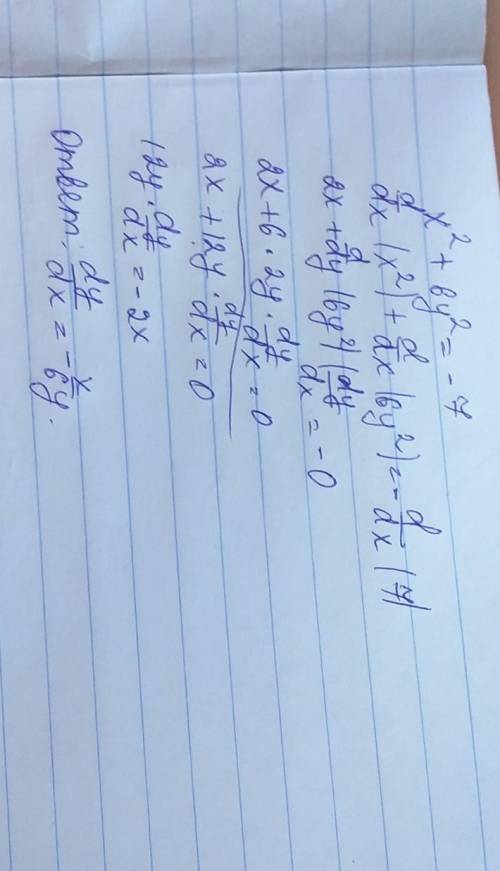 x² + 6y² = -7
d/dx (x²) + d/dx (6y²) = - d/dx (7)
2x + d/dy (6y²) (dy/dx = -0
2x + 6 · 2y · dy/dx = 0
2x + 12y · dy/dx = 0
12y · dy/dx = -2x
Ответ: dy/dx = - x/6y.